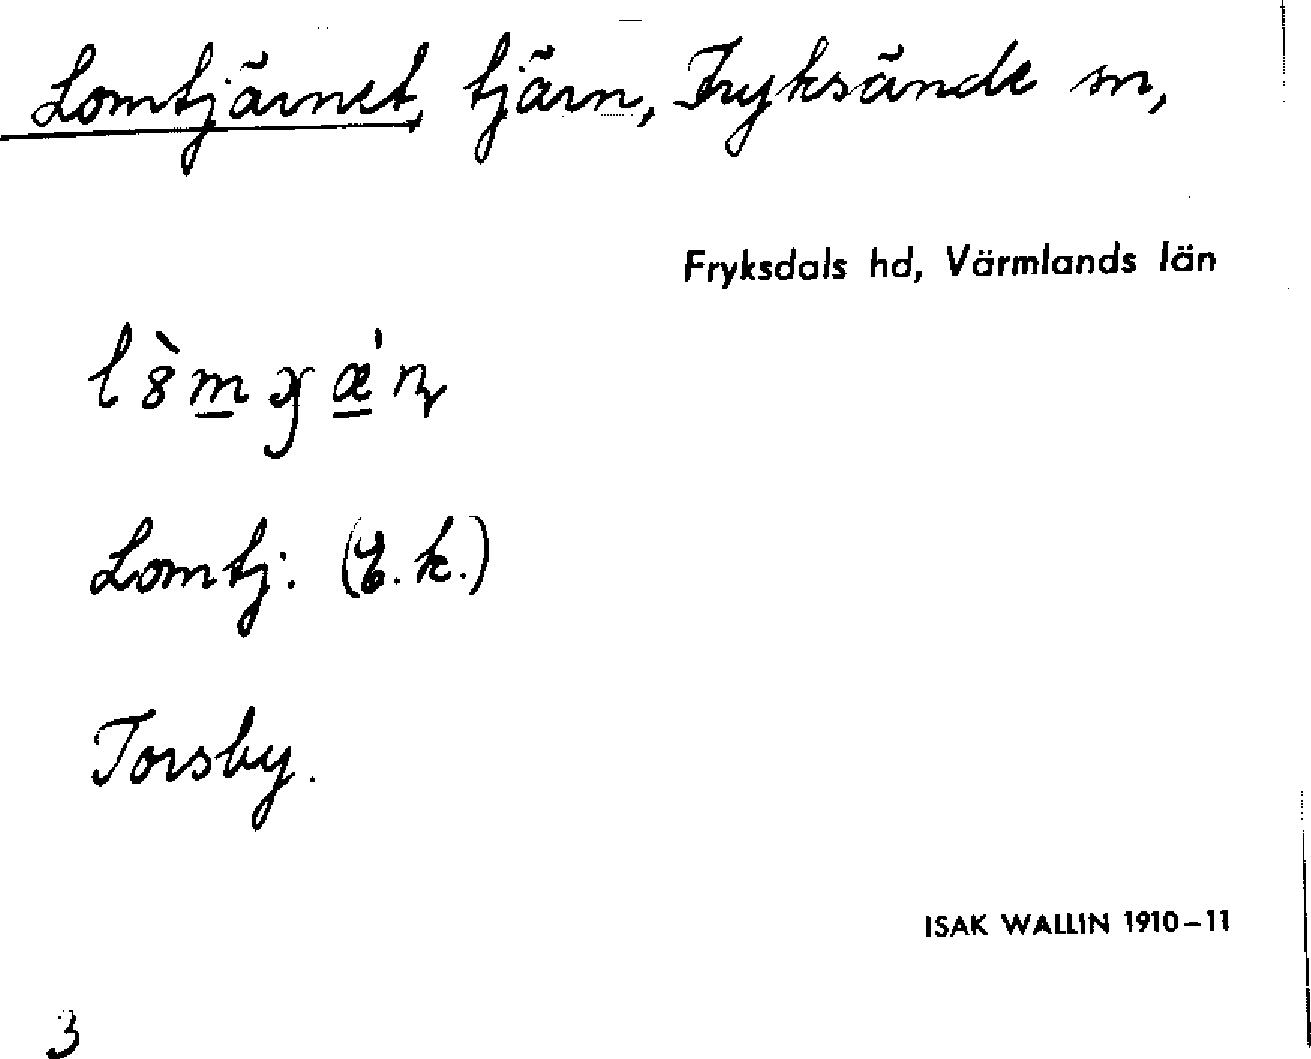 Lomtjärnet, tjärn, Fryksände sn,
Fryksdals hd, Värmlands län
Lomtj. (E.k.)
Torsby.
ISAK WALLIN 1910–11
3